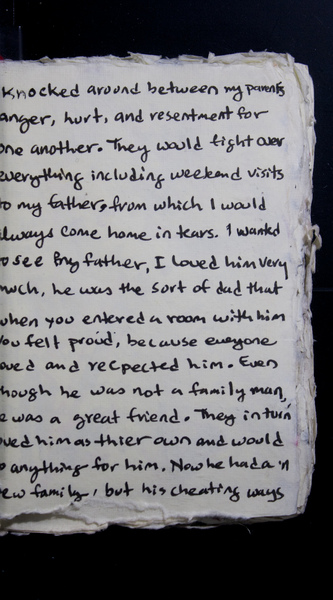 Knocked around between my parents
anger, hurt, and resentment for
one another. They would fight over
everything including weekend visits
to my fathers, from which I would
always come home in tears. I wanted
to see my father, I loved him very
much, he was the sort of dad that
when you entered a room with him
you felt proud, because everyone
loved and recpected him. Even
though he was not a family man,
he was a great friend. They in turn
loved him as thier own and would
do anything for him. Now he had a
new family, but his cheating ways